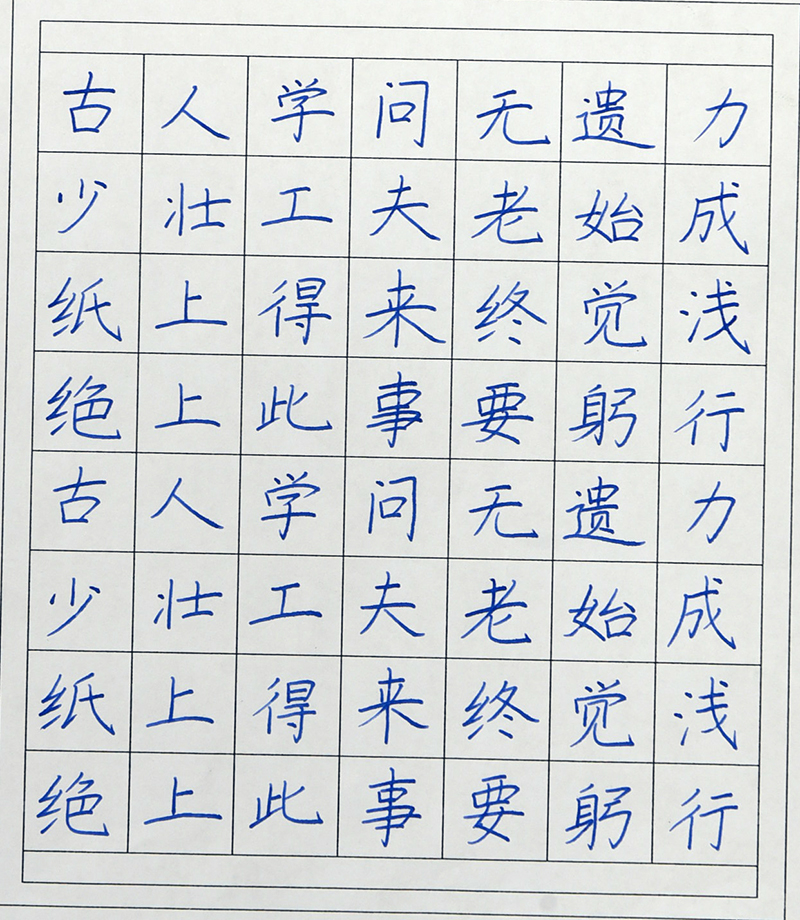 古人学问无遗力
少壮工夫老始成
纸上得来终觉浅
绝上此事要躬行
古人学问无遗力
少壮工夫老始成
纸上得来终觉浅
绝上此事要躬行